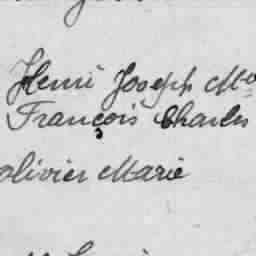 Henri Joseph Mie
François Charles
olivier Marie